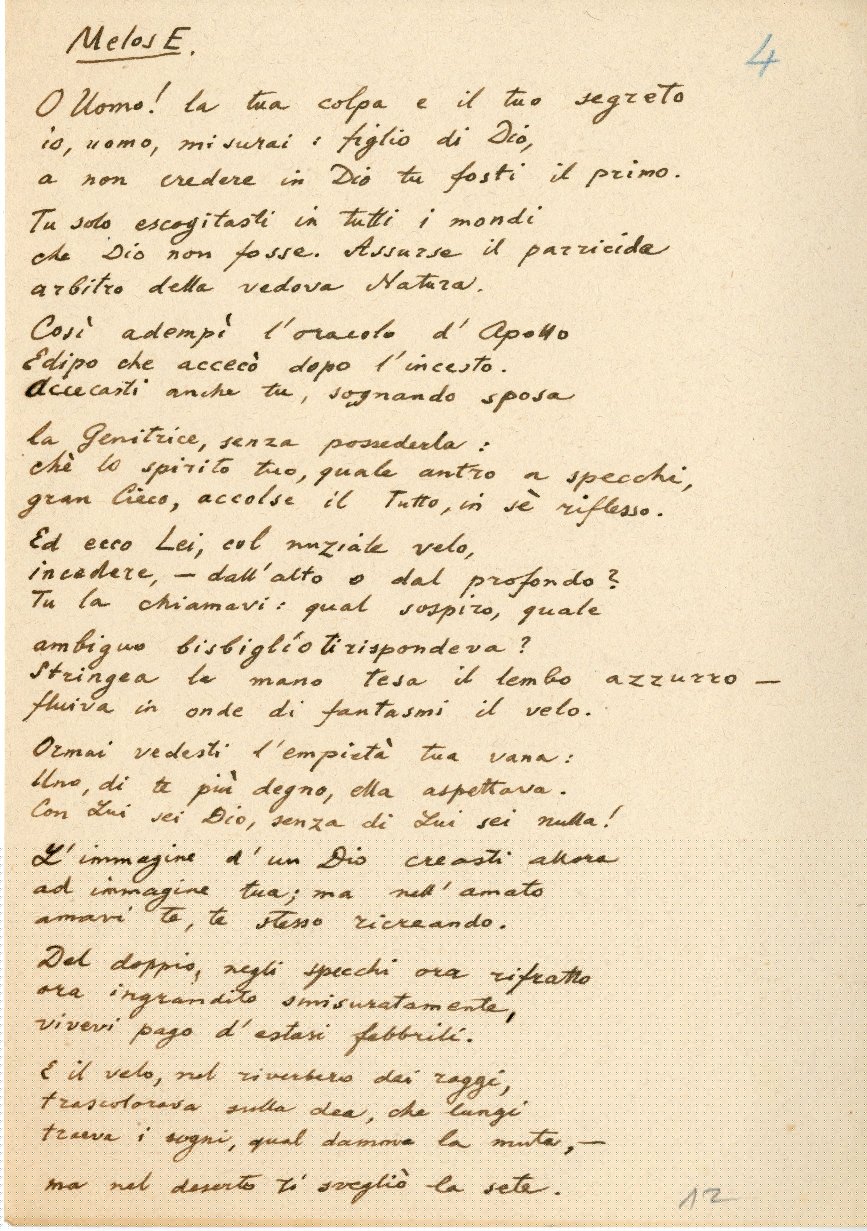 Melos E.
4
O Uomo! la tua colpa e il tuo segreto
io, uomo, misurai : figlio di Dio,
a non credere in Dio tu fosti il primo.
Tu solo escogitasti in tutti i mondi
che Dio non fosse. Assurse il parricida
arbitro della vedova Natura.
Così adempì l'oracolo d'Apollo
Edipo che accecò dopo l'incesto.
Accecasti anche tu, sognando sposa
la Genitrice, senza possederla :
chè lo spirito tuo, quale antro a specchi,
gran Cieco, accolse il Tutto, in sè riflesso.
Ed ecco Lei, col nuziale velo,
incedere, — dall'alto o dal profondo?
Tu la chiamavi : qual sospiro, quale
ambiguo bisbiglio ti rispondeva?
Stringea la mano tesa il lembo azzurro —
fluiva in onde di fantasmi il velo.
Ormai vedesti l'empietà tua vana :
Uno, di te più degno, ella aspettava.
Con Lui sei Dio, senza di Lui sei nulla!
L'immagine d'un Dio creasti allora
ad immagine tua; ma nell'amato
amavi te, te stesso ricreando.
Del doppio, negli specchi ora rifratto
ora ingrandito smisuratamente,
vivevi pago d'estasi febbrili.
E il velo, nel riverbero dei raggi,
trascolorava sulla dea, che lungi
traeva i sogni, qual damma la muta, —
ma nel deserto ti svegliò la sete.
12